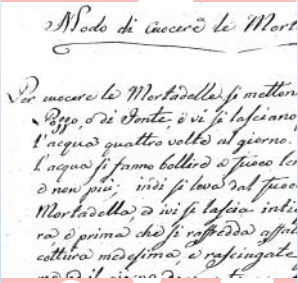 Modo di Cuocere le Mort
Per cuocere le Mortadelle si metton
Pozzo, o di Fonte, e vi si lasciano
l'acqua quattro volte al giorno.
l'acqua si fanno bollire a fuoco len
e non più; indi si leva dal fuoc
Mortadella, e ivi si lascia inti
rà, e prima che si raffredda affat
cottura medesima, e rasciugate